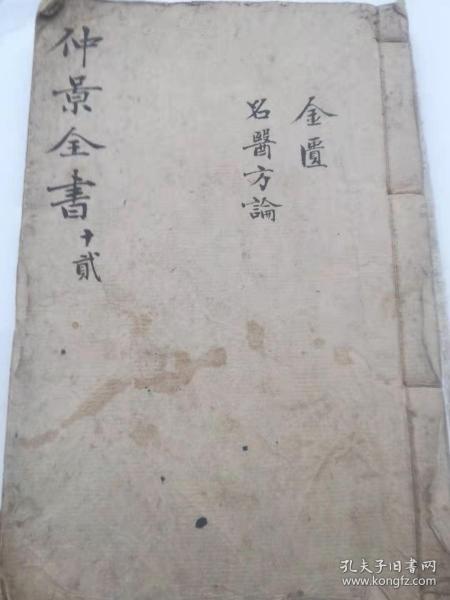 金匱
名醫方論
仲景全書十貳
孔夫子旧书网
www.kongfz.com